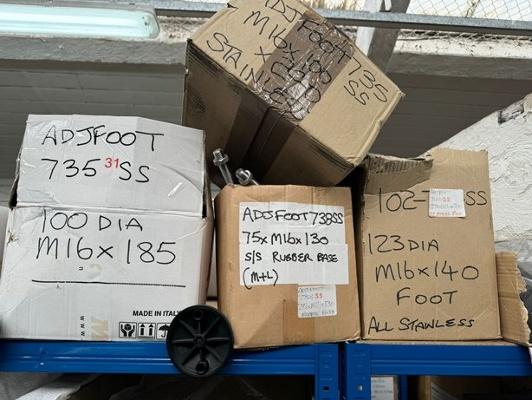 ADJ FOOT 735
M16x100
STAINLESS
SS
ADJFOOT
735 31 SS
100 DIA
M16 x 185
MADE IN ITALY
ADJ FOOT 738SS
75x M16x130
S/S RUBBER BASE
(M+L)
102-
SS
123 DIA
M16 x 140
FOOT
ALL STAINLESS